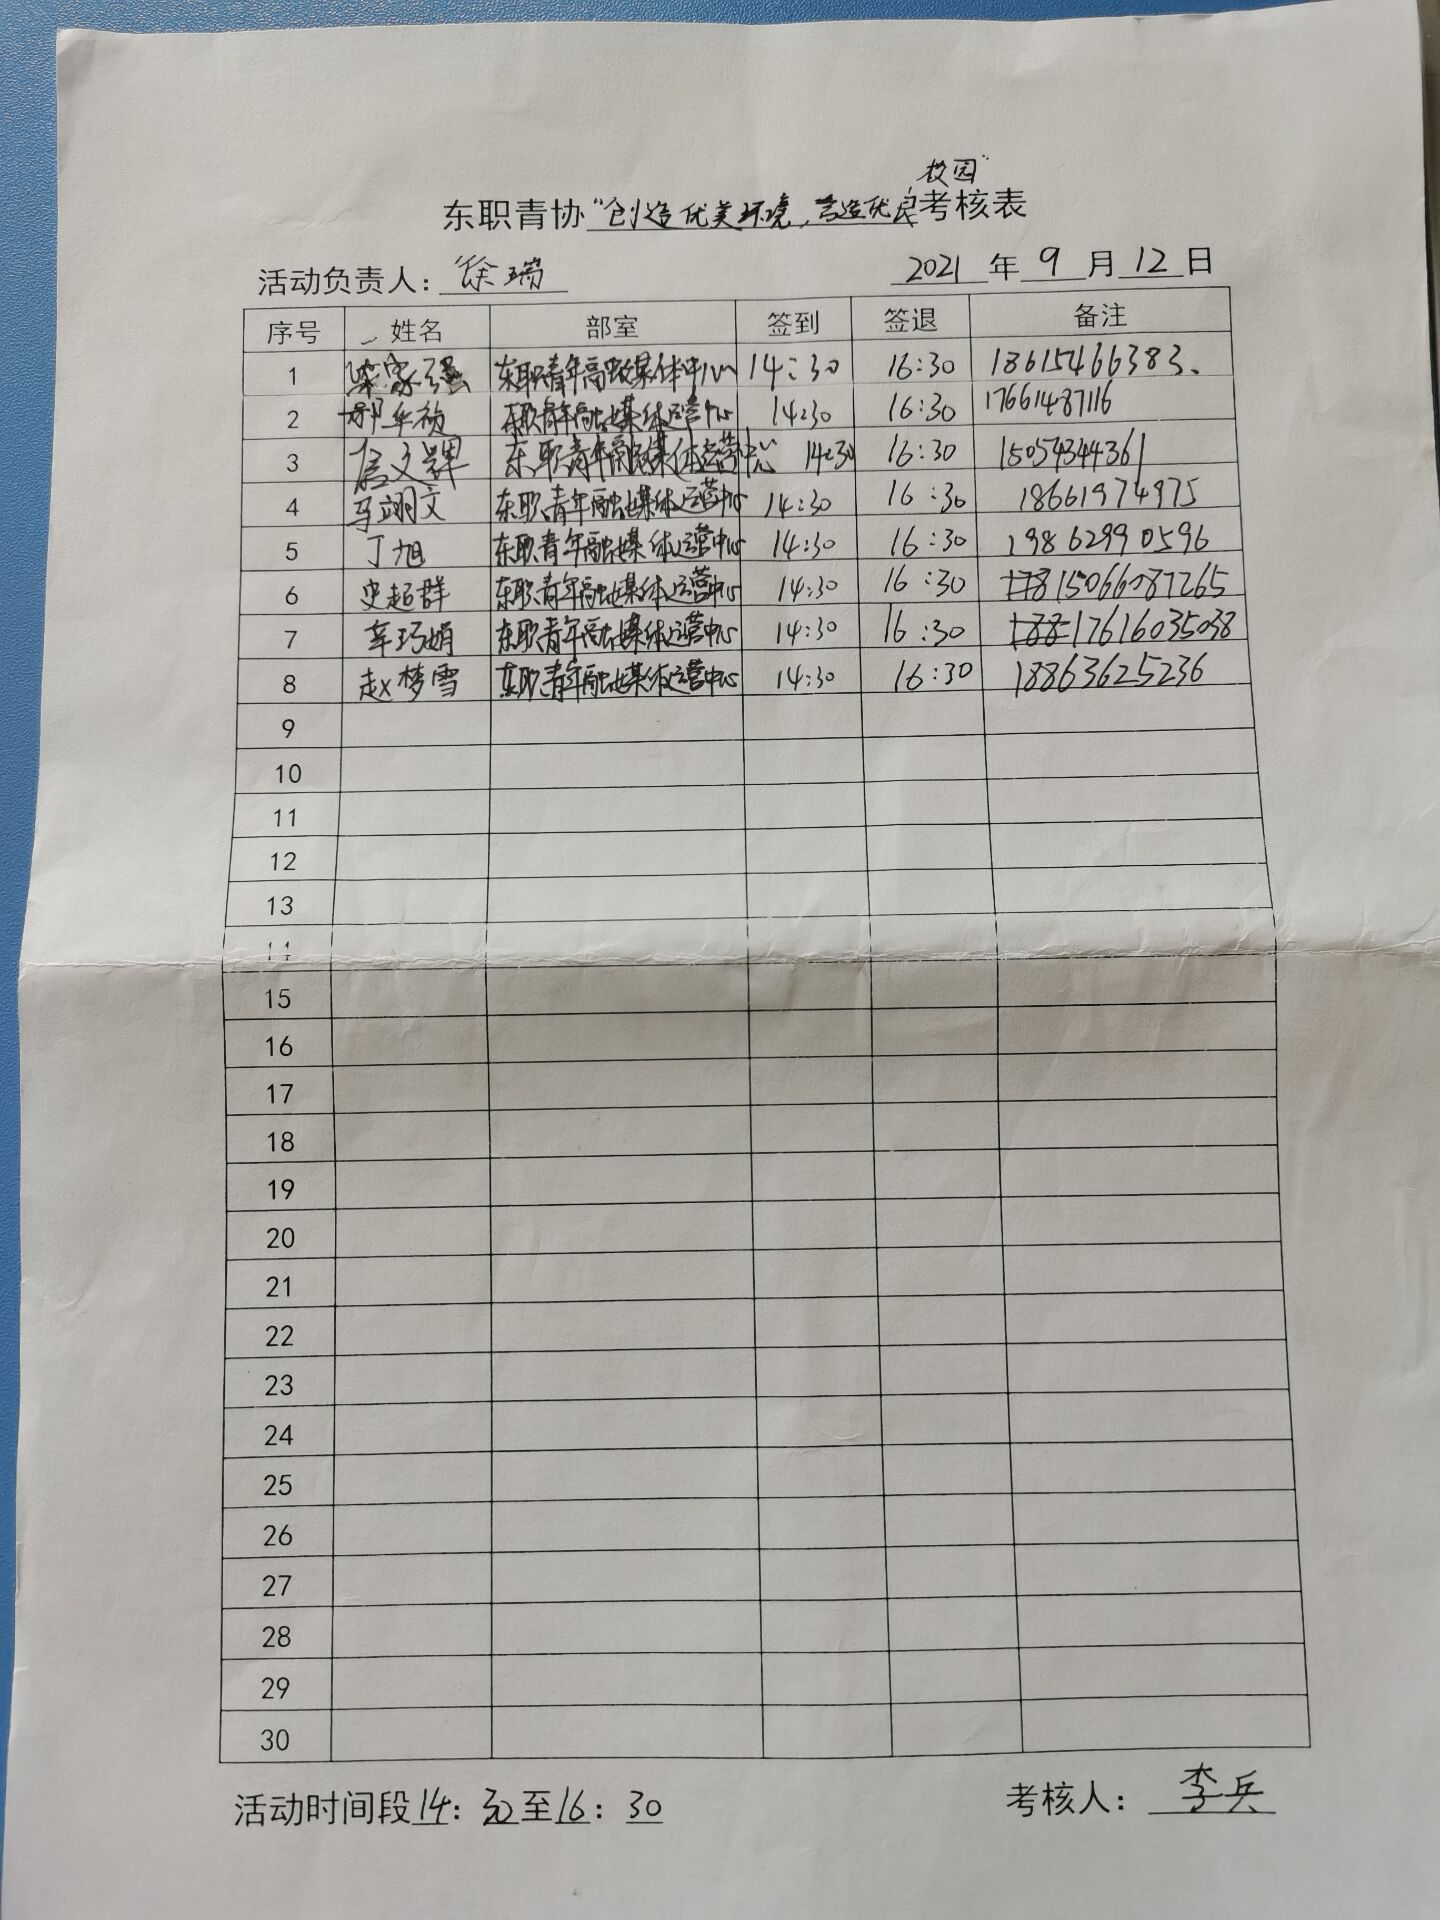 校园”
东职青协“创造优美环境，营造优良考核表
活动负责人：徐瑞 2021年9月12日
序号 姓名 部室 签到 签退 备注
1 梁家强 东职青年融媒体中心 14:30 16:30 18615466383.
2 郭华祯 东职青年融媒体运营中心 14:30 16:30 17661487116
3 信文辉 东职青年融媒体运营中心 14:30 16:30 15054344361
4 马翊文 东职青年融媒体运营中心 14:30 16:30 18661974975
5 丁旭 东职青年融媒体运营中心 14:30 16:30 19862990596
6 史超群 东职青年融媒体运营中心 14:30 16:30 15066087265
7 辛巧娟 东职青年融媒体运营中心 14:30 16:30 17616035038
8 赵梦雪 东职青年融媒体运营中心 14:30 16:30 18863625236
9
10
11
12
13
14
15
16
17
18
19
20
21
22
23
24
25
26
27
28
29
30
活动时间段14：30至16：30 考核人：李兵